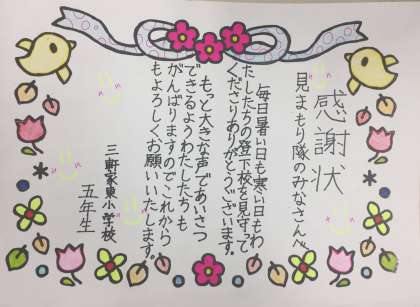 感謝状
見まもり隊のみなさんへ
毎日暑い日も寒い日もわ
たしたちの登下校を見守って
くださりありがとうございます。
もっと大きな声であいさつ
できるようわたしたちも
がんばりますのでこれから
もよろしくお願いいたします。
三軒家東小学校
五年生